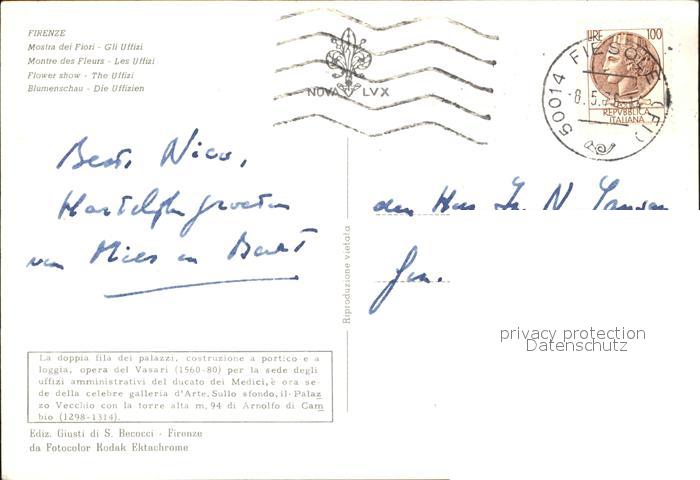 FIRENZE
Mostra dei Fiori - Gli Uffizi
Montre des Fleurs - Les Uffizi
Flower show - The Uffizi
Blumenschau - Die Uffizien
NOVA LVX
LIRE 100
REPVBBLICA
ITALIANA
50014 FIESOLE (FI)
Beste Nico,
Hartelijke groeten
van Mies en Bart
den Heer
Riproduzione vietata
privacy protection
Datenschutz
La doppia fila dei palazzi, costruzione a portico e a
loggia, opera del Vasari (1560-80) per la sede degli
uffizi amministrativi del ducato dei Medici, è ora se-
de della celebre galleria d'Arte. Sullo sfondo, il Palaz
zo Vecchio con la torre alta m. 94 di Arnolfo di Cam
bio (1298-1314).
Ediz. Giusti di S. Becocci - Firenze
da Fotocolor Kodak Ektachrome